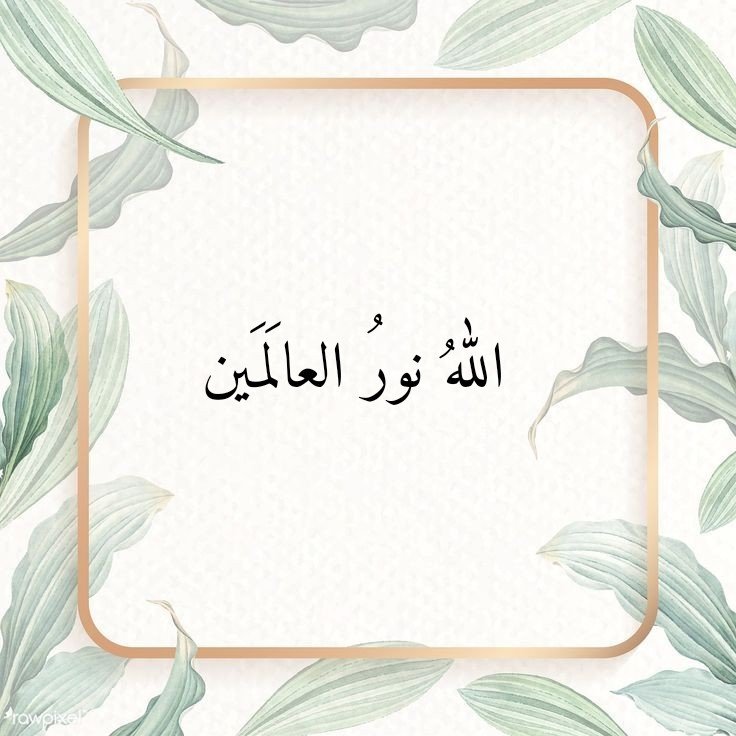 اللهُ نورُ العالَمَين
rawpixel